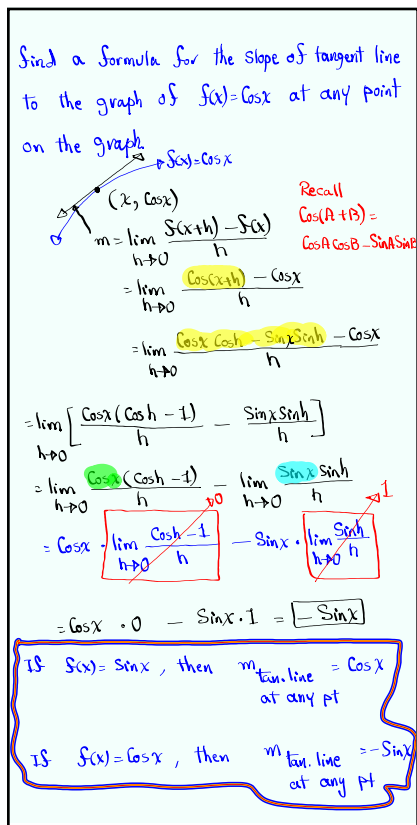 find a formula for the slope of tangent line
to the graph of f(x)=Cosx at any point
on the graph.
f(x)=Cosx
(x, Cosx)
Recall
Cos(A+B)=
CosA CosB - SinA SinB
m = lim h→0 (f(x+h) - f(x))/h
= lim h→0 (Cos(x+h) - Cosx)/h
= lim h→0 (Cosx Cosh - Sinx Sinh - Cosx)/h
= lim h→0 [Cosx(Cosh - 1)/h - Sinx Sinh/h]
= lim h→0 Cosx(Cosh - 1)/h - lim h→0 Sinx Sinh/h
0 1
= Cosx · lim h→0 (Cosh - 1)/h - Sinx · lim h→0 Sinh/h
= Cosx · 0 - Sinx · 1 = -Sinx
If f(x) = Sinx, then m tan. line = Cosx
at any pt
If f(x) = Cosx, then m tan. line = -Sinx
at any pt